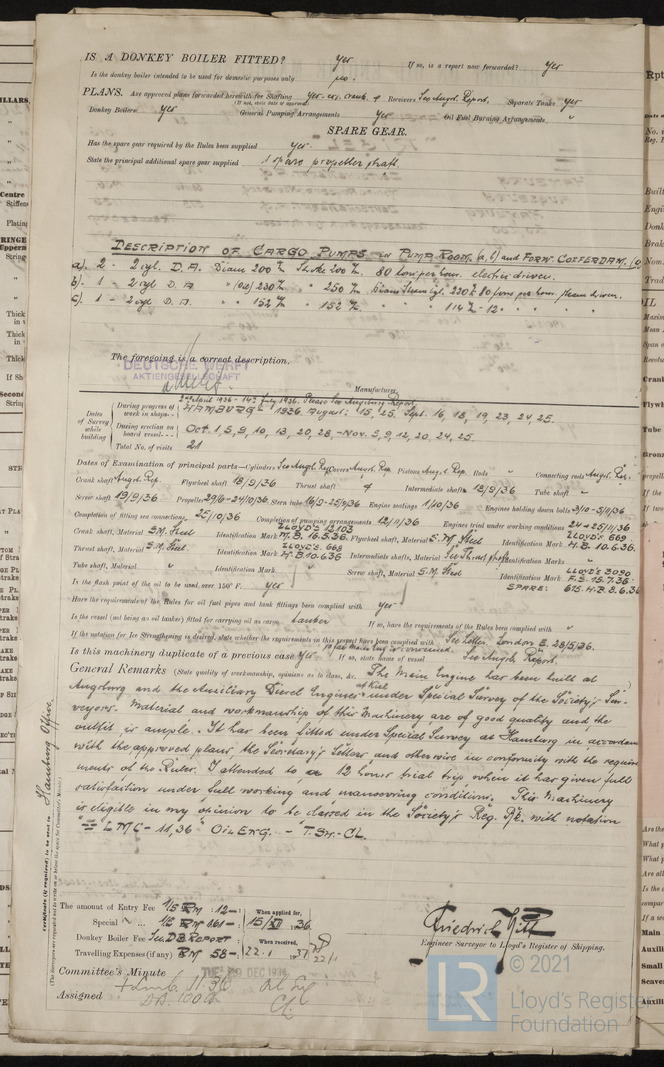 IS A DONKEY BOILER FITTED? yes If so, is a report now forwarded? yes
Is the donkey boiler intended to be used for domestic purposes only no.
PLANS. Are approved plans forwarded herewith for Shafting yes Receivers See Augsb. Report. Separate Tanks yes
(If not, state date of approval)
Donkey Boilers yes General Pumping Arrangements yes Oil Fuel Burning Arrangements "
SPARE GEAR.
Has the spare gear required by the Rules been supplied yes.
State the principal additional spare gear supplied 1 spare propeller shaft.
DESCRIPTION OF CARGO PUMPS in PUMP ROOM (a, b) and FORW. COFFERDAM.
a). 2 - 2 cyl. D. A. Diam 200 Stroke 200 80 tons per hour. electr. driven.
b). 1 - 2 cyl D. A 230 250 80 tons per hour. steam driven.
c). 1 - 2 cyl D. A. " 152 " 152 " " 114 - 12 " " " "
The foregoing is a correct description.
DEUTSCHE WERFT
AKTIENGESELLSCHAFT
Manufacturer.
Dates of Survey while building
During progress of work in shops - - 2nd April 1936 - 14th July 1936. Please see Augsburg Report.
HAMBURG - 1936. August: 15, 25, Sept. 16, 18, 19, 23, 24, 25.
During erection on board vessel - - Oct. 1, 5, 9, 10, 13, 20, 28, - Nov. 5, 9, 12, 20, 24, 25.
Total No. of visits 21
Dates of Examination of principal parts—Cylinders See Augsb. Rep. Covers Augsb. Rep. Pistons Augsb. Rep. Rods " Connecting rods Augsb. Rep.
Crank shaft Augsb. Rep. Flywheel shaft 18/9/36 Thrust shaft Intermediate shafts 18/9/36 Tube shaft "
Screw shaft 19/9/36 Propeller 29/6-24/10/36 Stern tube 16/9-25/9/36 Engine seatings 1/10/36 Engines holding down bolts 3/10-5/11/36
Completion of fitting sea connections 25/10/36 Completion of pumping arrangements 12/11/36 Engines tried under working conditions 24 & 25/11/36
Crank shaft, Material S.M. Steel Identification Mark LLOYD'S 12103 M.B. 16.5.36. Flywheel shaft, Material S.M. Steel Identification Mark LLOYD'S 669 H.B. 10.6.36.
Thrust shaft, Material S.M. Steel. Identification Mark LLOYD'S. 668 H.B. 10.6.36 Intermediate shafts, Material See Thrust shaft Identification Marks "
Tube shaft, Material " Identification Mark " Screw shaft, Material S.M. Steel Identification Mark LLOYD'S 3090 F.S. 15.7.36.
SPARE: 615. H.B. 8.6.36
Is the flash point of the oil to be used over 150° F. yes
Have the requirements of the Rules for oil fuel pipes and tank fittings been complied with yes
Is the vessel (not being an oil tanker) fitted for carrying oil as cargo tanker If so, have the requirements of the Rules been complied with "
If the notation for Ice Strengthening is desired, state whether the requirements in this respect have been complied with See Letter. London E. 28/5/36.
as far main eng. is concerned
Is this machinery duplicate of a previous case Yes If so, state name of vessel See Augsb. Report.
General Remarks (State quality of workmanship, opinions as to class, &c. The Main Engine has been built at
Augsburg and the Auxiliary Diesel Engines at Kiel under Special Survey of the Society's Sur-
veyors. Material and workmanship of this Machinery are of good quality and the
outfit is ample. It has been fitted under Special Survey at Hamburg in accordance
with the approved plans, the Secretary's Letters and otherwise in conformity with the require
ments of the Rules. I attended to a 12 hours trial trip when it has given full
satisfaction under full working and manoeuvring conditions. This Machinery
is eligible in my opinion to be classed in the Society's Reg. Bk. with notation
LMC - 11,36 OIL ENG. - T.SH.-CL.
Certificate (if required) to be sent to Hamburg Office.
(The Surveyors are requested not to write on or below the space for Committee's Minute.)
The amount of Entry Fee 1/5 RM : 12-: When applied for,
Special " 1/5 RM 961-: 15/XII 1936
Donkey Boiler Fee See DB REPORT When received,
Travelling Expenses (if any) RM 58-: 22.1. 1937 22/1
Friedrich
Engineer Surveyor to Lloyd's Register of Shipping.
Committee's Minute TUE 29 DEC 1936
Assigned + LMC 11.36 Oil Eng
DB. 100 CL
© 2021
LR
Lloyd's Register
Foundation